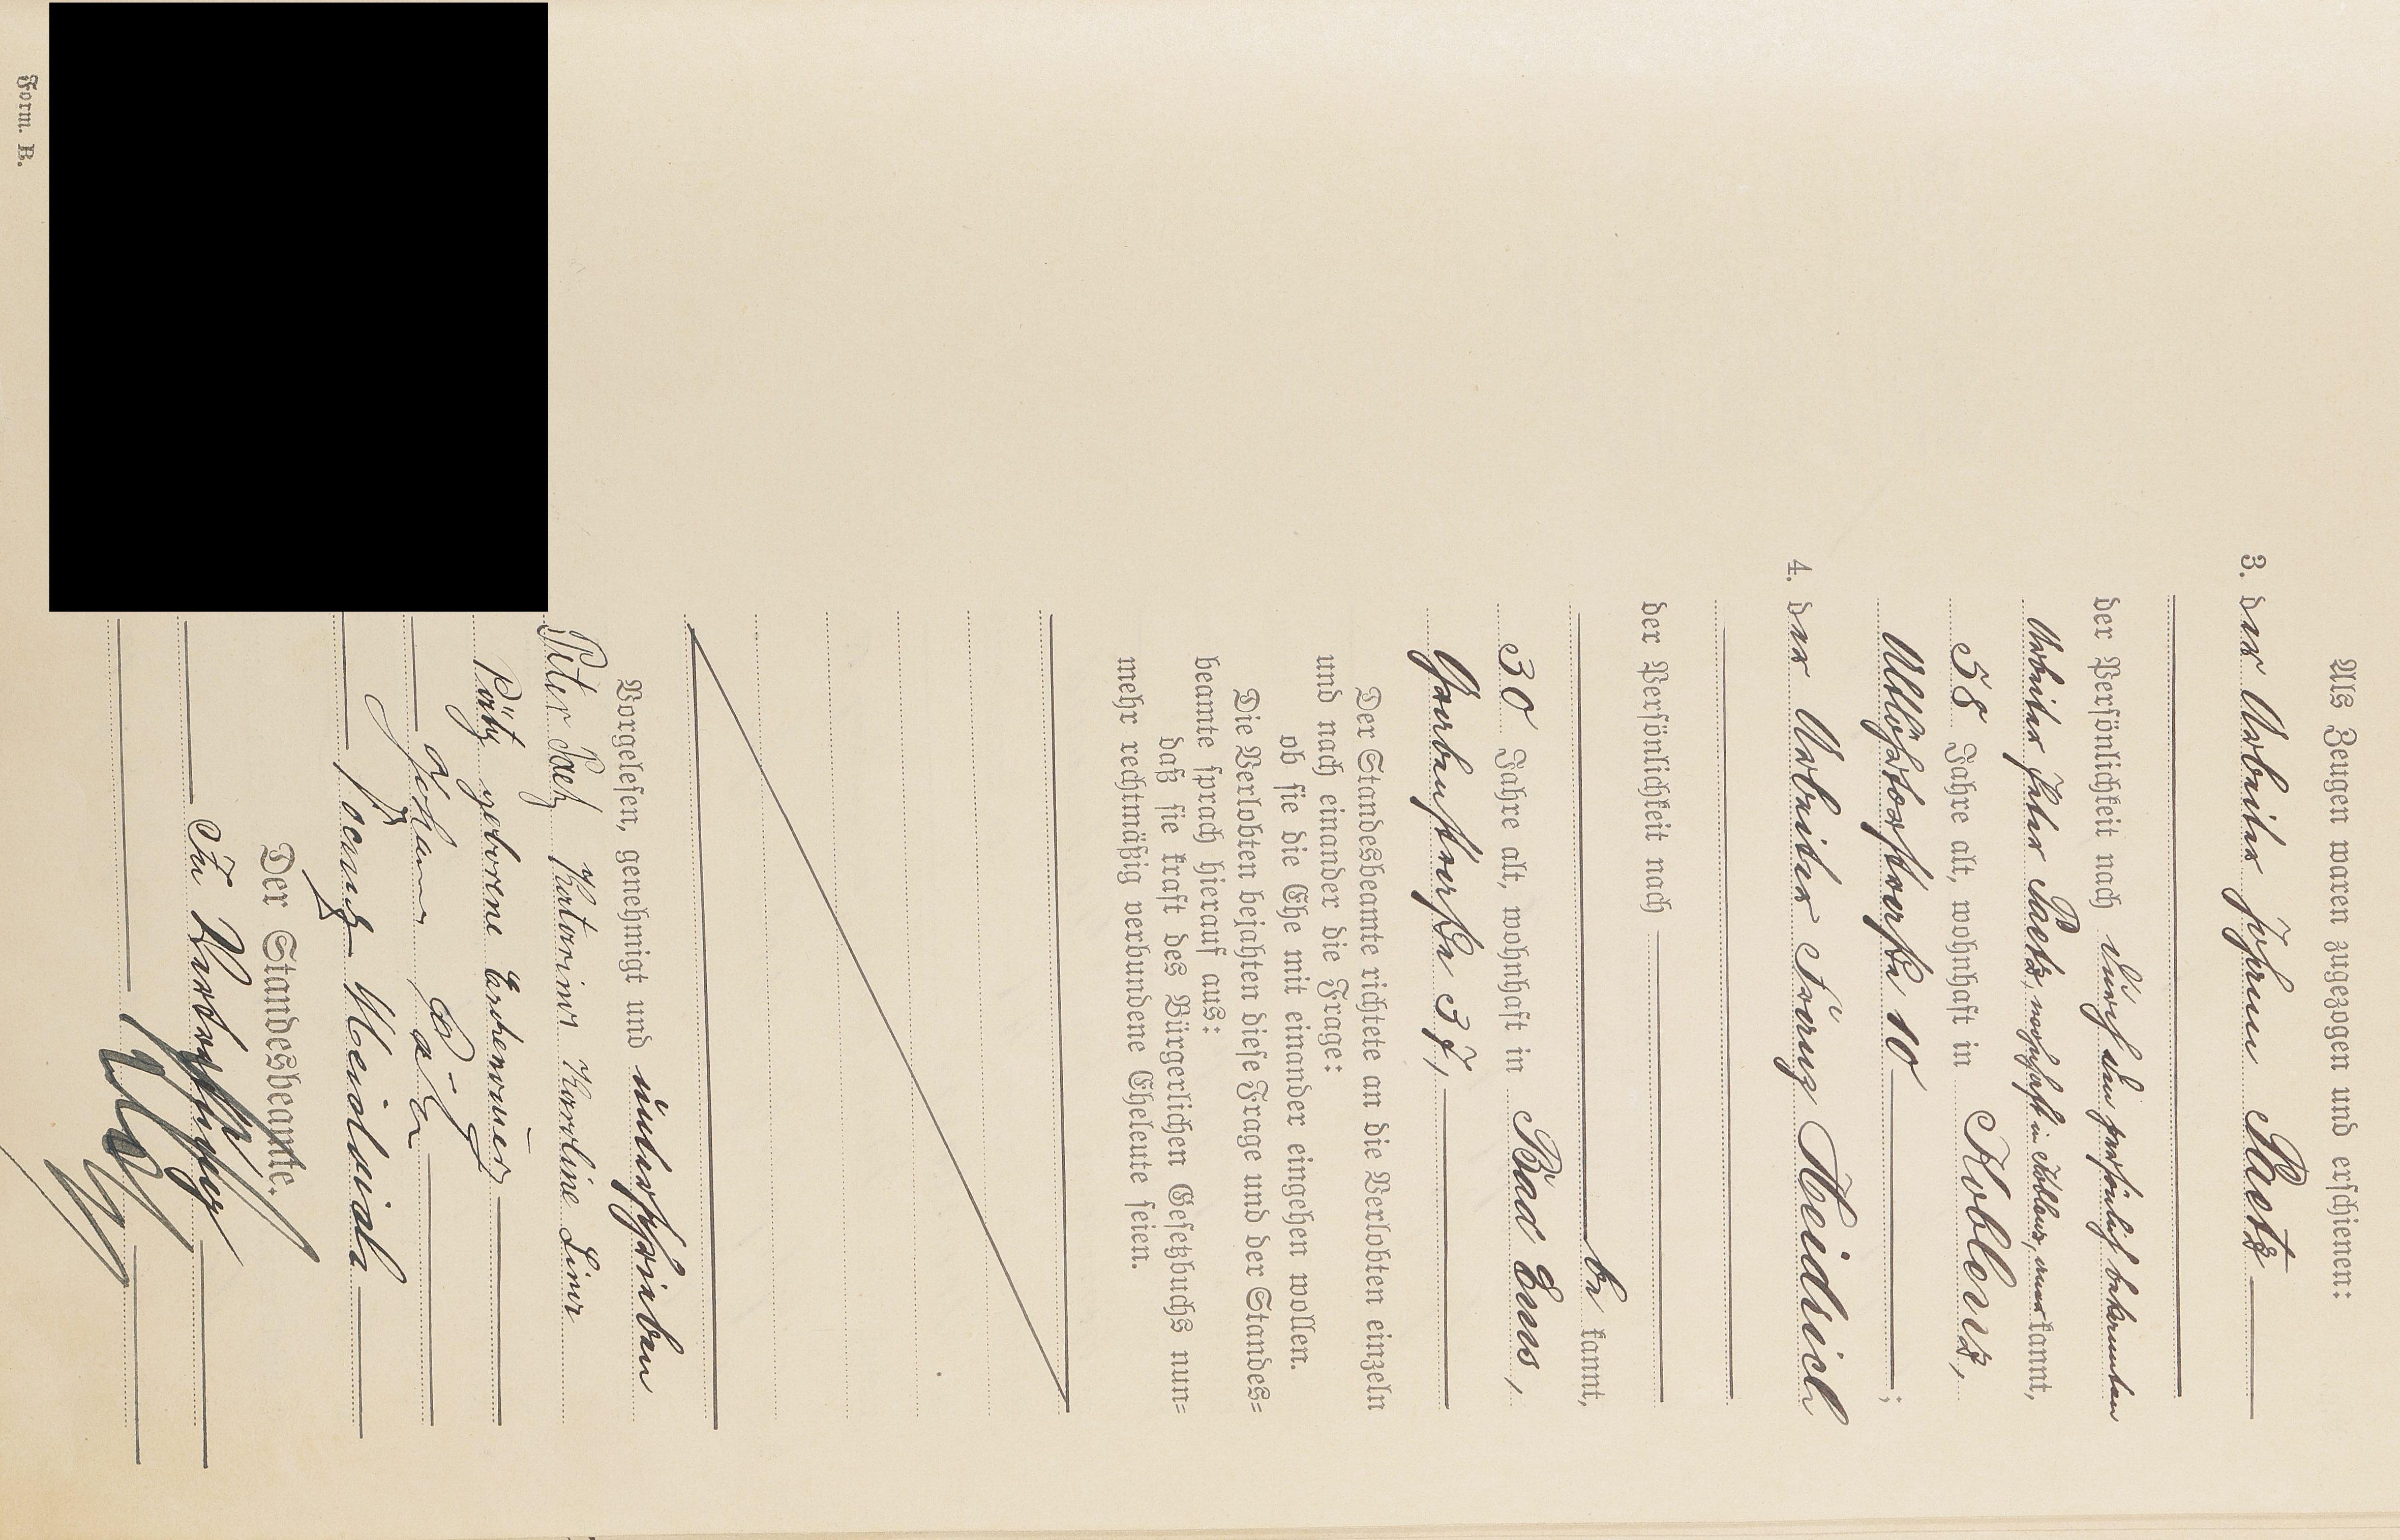 Als Zeugen waren zugezogen und erschienen:
3. der Arbeiter Johann Paetz
der Persönlichkeit nach durch den persönlich bekannten
Arbeiter Peter Paetz, wohnhaft in Koblenz, anerkannt,
58 Jahre alt, wohnhaft in Koblenz,
10
4. der Arbeiter Franz Meidrich
der Persönlichkeit nach
be kannt,
30 Jahre alt, wohnhaft in Bad Ems,
Grabenstraße 37,
Der Standesbeamte richtete an die Verlobten einzeln
und nach einander die Frage:
ob sie die Ehe mit einander eingehen wollen.
Die Verlobten bejahten diese Frage und der Standes=
beamte sprach hierauf aus:
daß sie kraft des Bürgerlichen Gesetzbuchs nun=
mehr rechtmäßig verbundene Eheleute seien.
Vorgelesen, genehmigt und unterschrieben
Peter Paetz Katarina Karoline Lina
Pätz geborene
Johann Pätz
Franz Meidrich
Der Standesbeamte.
In Vertretung
Form. B.